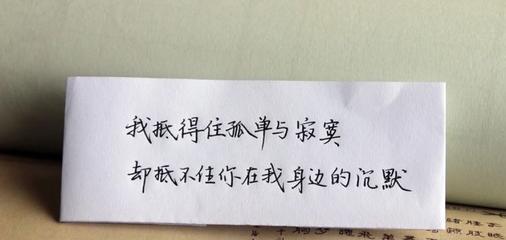 我抵得住孤单与寂寞
却抵不住你在我身边的沉默